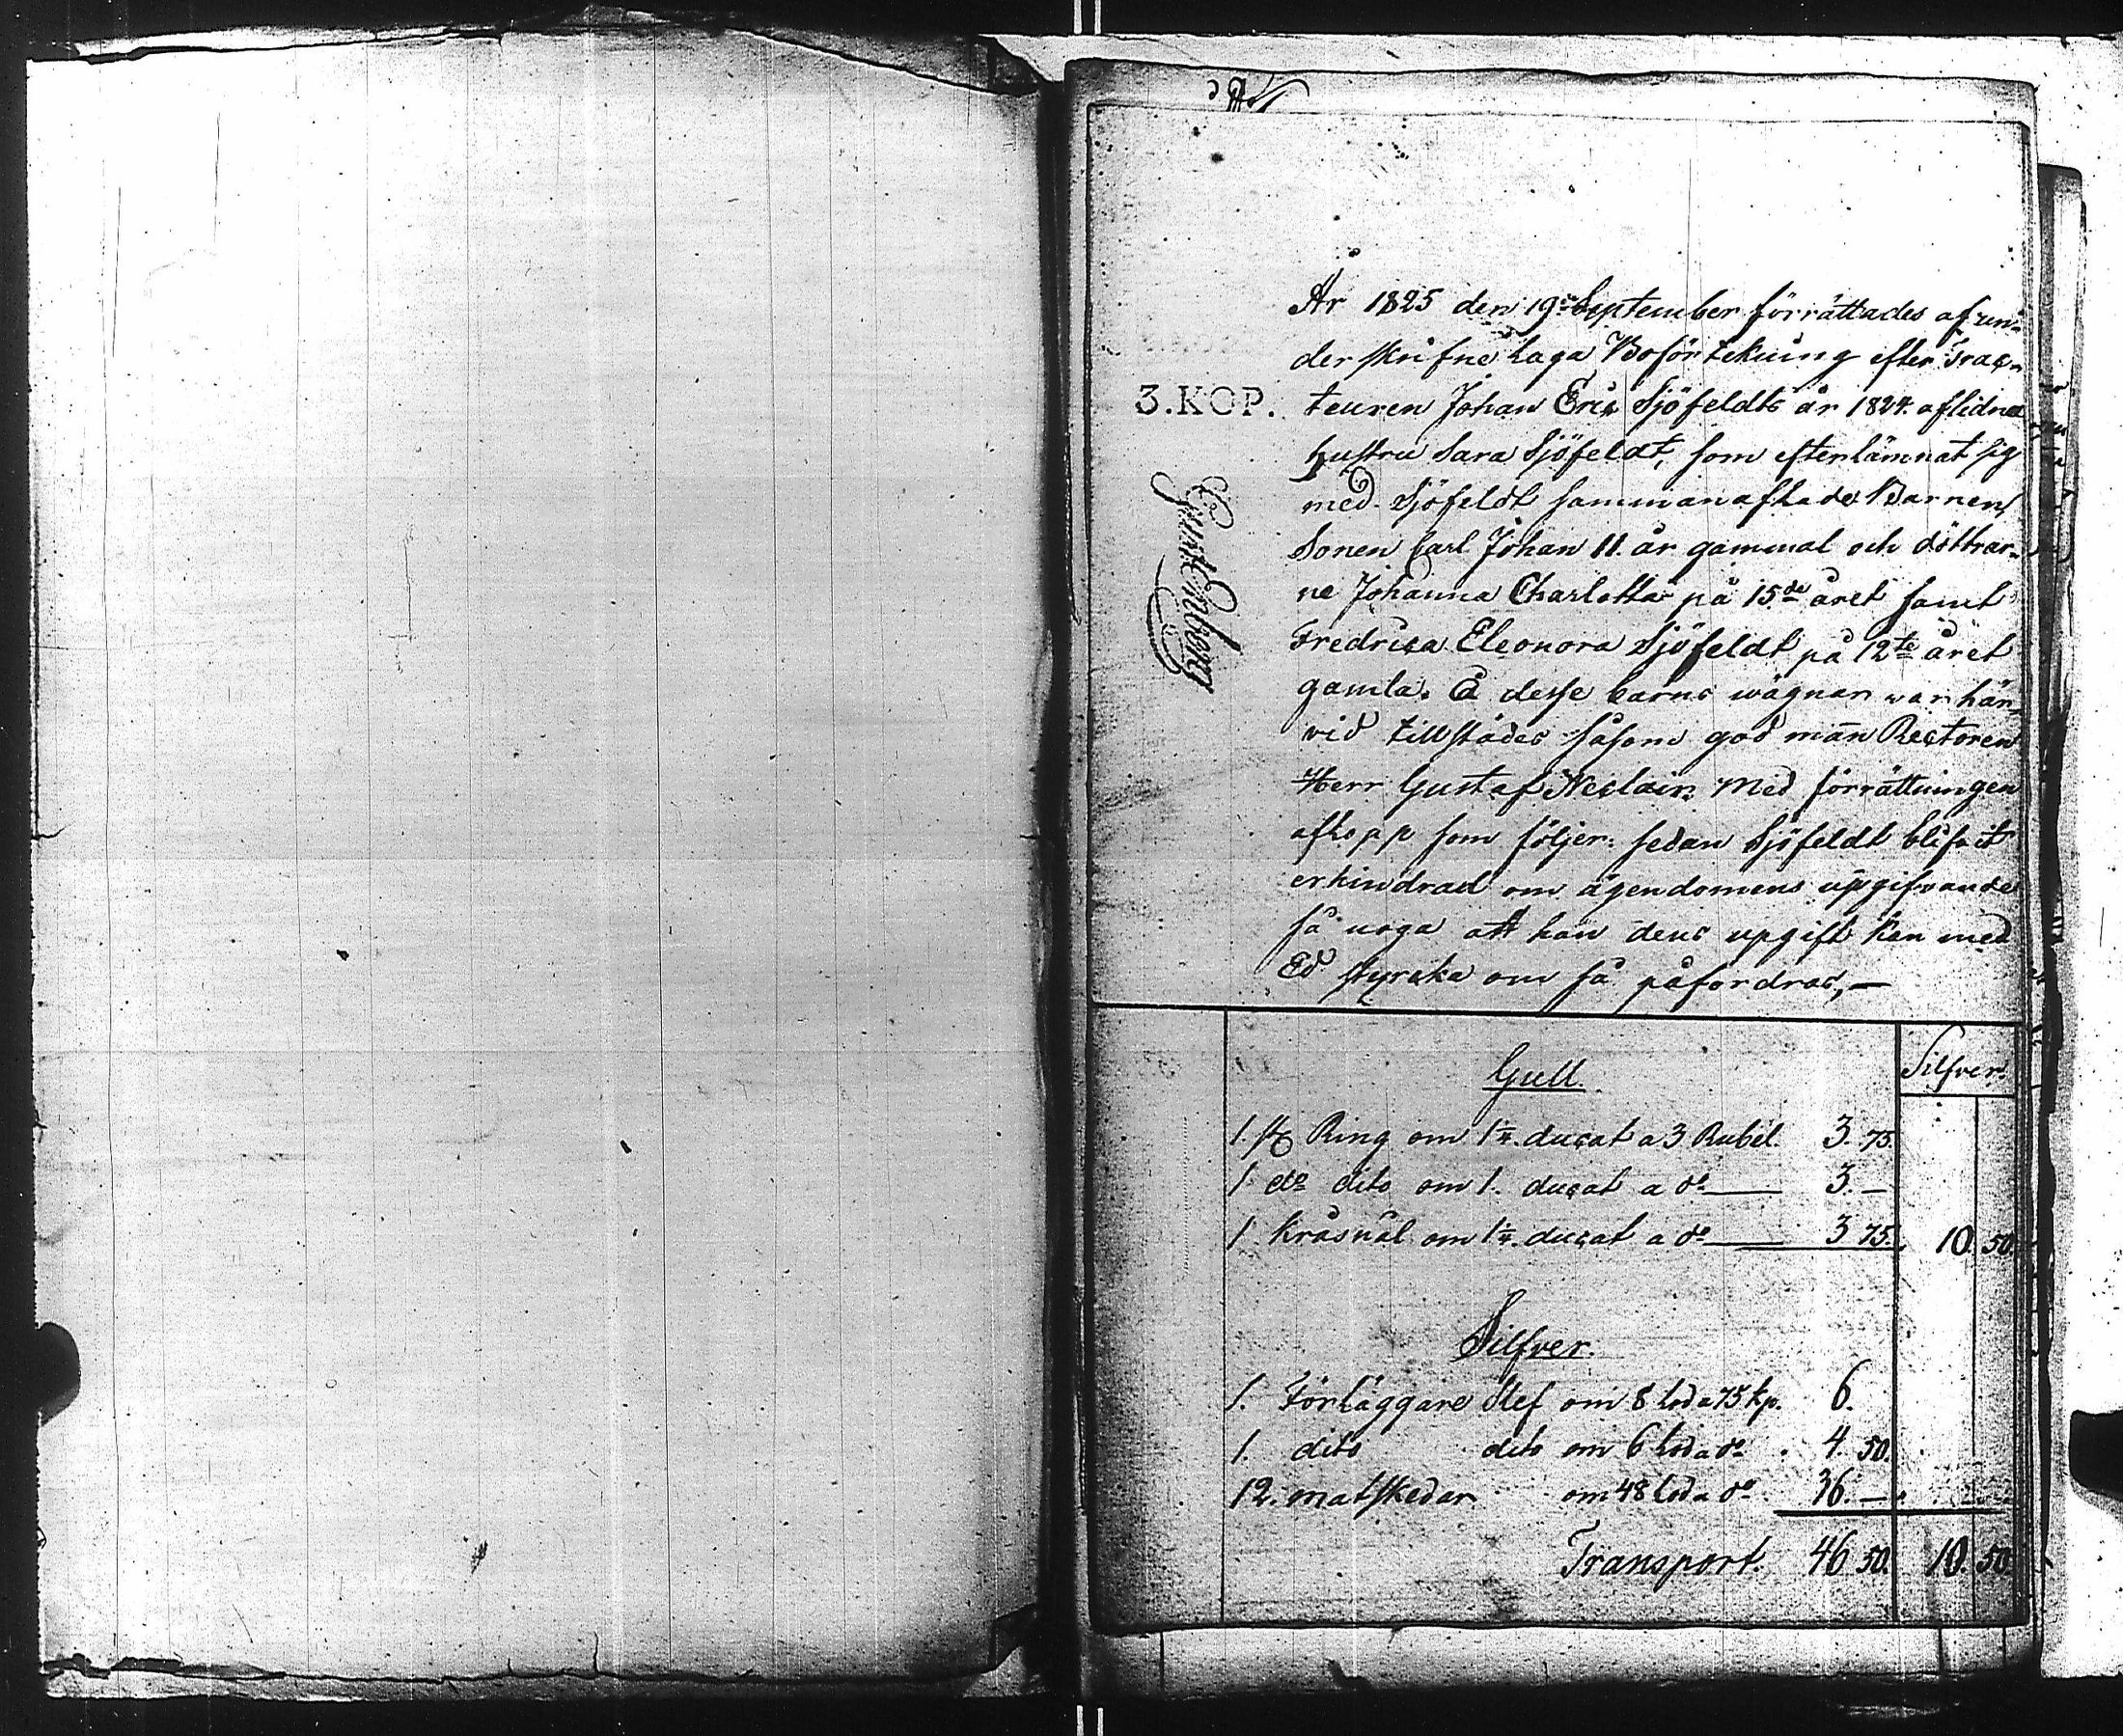 År 1825 den 19de September förrättades af un-
derskrifne laga Boförtekning efter Trac-
3.KOP.
teuren Johan Eric Sjöfeldts år 1824. aflidna
hustru Sara Sjöfeldt, som efterlämnat sig
med Sjöfeldt sammanaflade Barnen,
Sonen Carl Johan 11. år gammal och döttrar-
ne Johanna Charlotta på 15de året samt
Fredrica Eleonora Sjöfeldt på 12te året
gamla. Å desse barns wägnar war här-
vid tillstädes såsom god man Rectoren
Herr Gustaf Med förrättningen
aflopp som följer: sedan Sjöfeldt blifvit
erhindrad om ägendomens upgifvande
så noga att han dens upgift kan med
Ed styrcka om så påfordras,—
Gust Enberg
Gull Silfver.
1. st Ring om 1¼. ducat a 3 Rubel. 3. 75.
1 do dito om 1. ducat a do — 3. —
1 kråsnål om 1¼. ducat a do — 3 75. 10. 50.
Silfver.
1. Förläggare Slef om 8 lod a 75 kp. 6.
1. dito dito om 6 lod a do . 4. 50.
12. matskedar om 48 lod a do 36. —
Transport. 46 50. 10. 50.